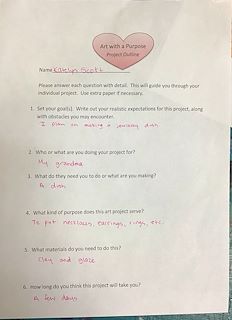 Art with a Purpose
Project Outline
Name Katelyn Scott
Please answer each question with detail. This will guide you through your
individual project. Use extra paper if necessary.
1. Set your goal(s). Write out your realistic expectations for this project, along
with obstacles you may encounter.
I plan on making a jewelry dish
2. Who or what are you doing your project for?
My grandma
3. What do they need you to do or what are you making?
A dish
4. What kind of purpose does this art project serve?
To put necklaces, earrings, rings, etc.
5. What materials do you need to do this?
Clay and glaze
6. How long do you think this project will take you?
A few days